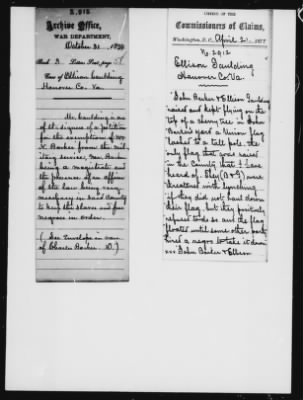 Archive Office,
WAR DEPARTMENT,
October 31, 187
Case of Ellison Gaulding
Hanover Co. Va.
Mr. Gaulding is one
of the signers of a petition
for the exemption of
from the mili-
tary service, Mr. Barker
being a magistrate and
the presence of an officer
of the law being very
necessary in said County
to keep the slaves and free
negroes in order.
(See Envelope in case
of Charles Barker. D.)
OFFICE OF THE
Commissioners of Claims,
Washington, D. C. April 2, 1877
No. 2912
Ellison Gaulding
Hanover Co. Va.
"John Barker & Ellison Gaulding
raised and kept flying on the
top of a cherry tree in John
Barker's yard a Union flag
lashed to a tall pole, the
only flag that was raised
in the County that I have
heard of. They (B & G) were
threatened with lynching
if they did not haul down
their flag, but they positively
refused to do so and the flag
floated until some other party
hired a negro to take it down
John Barker & Ellison